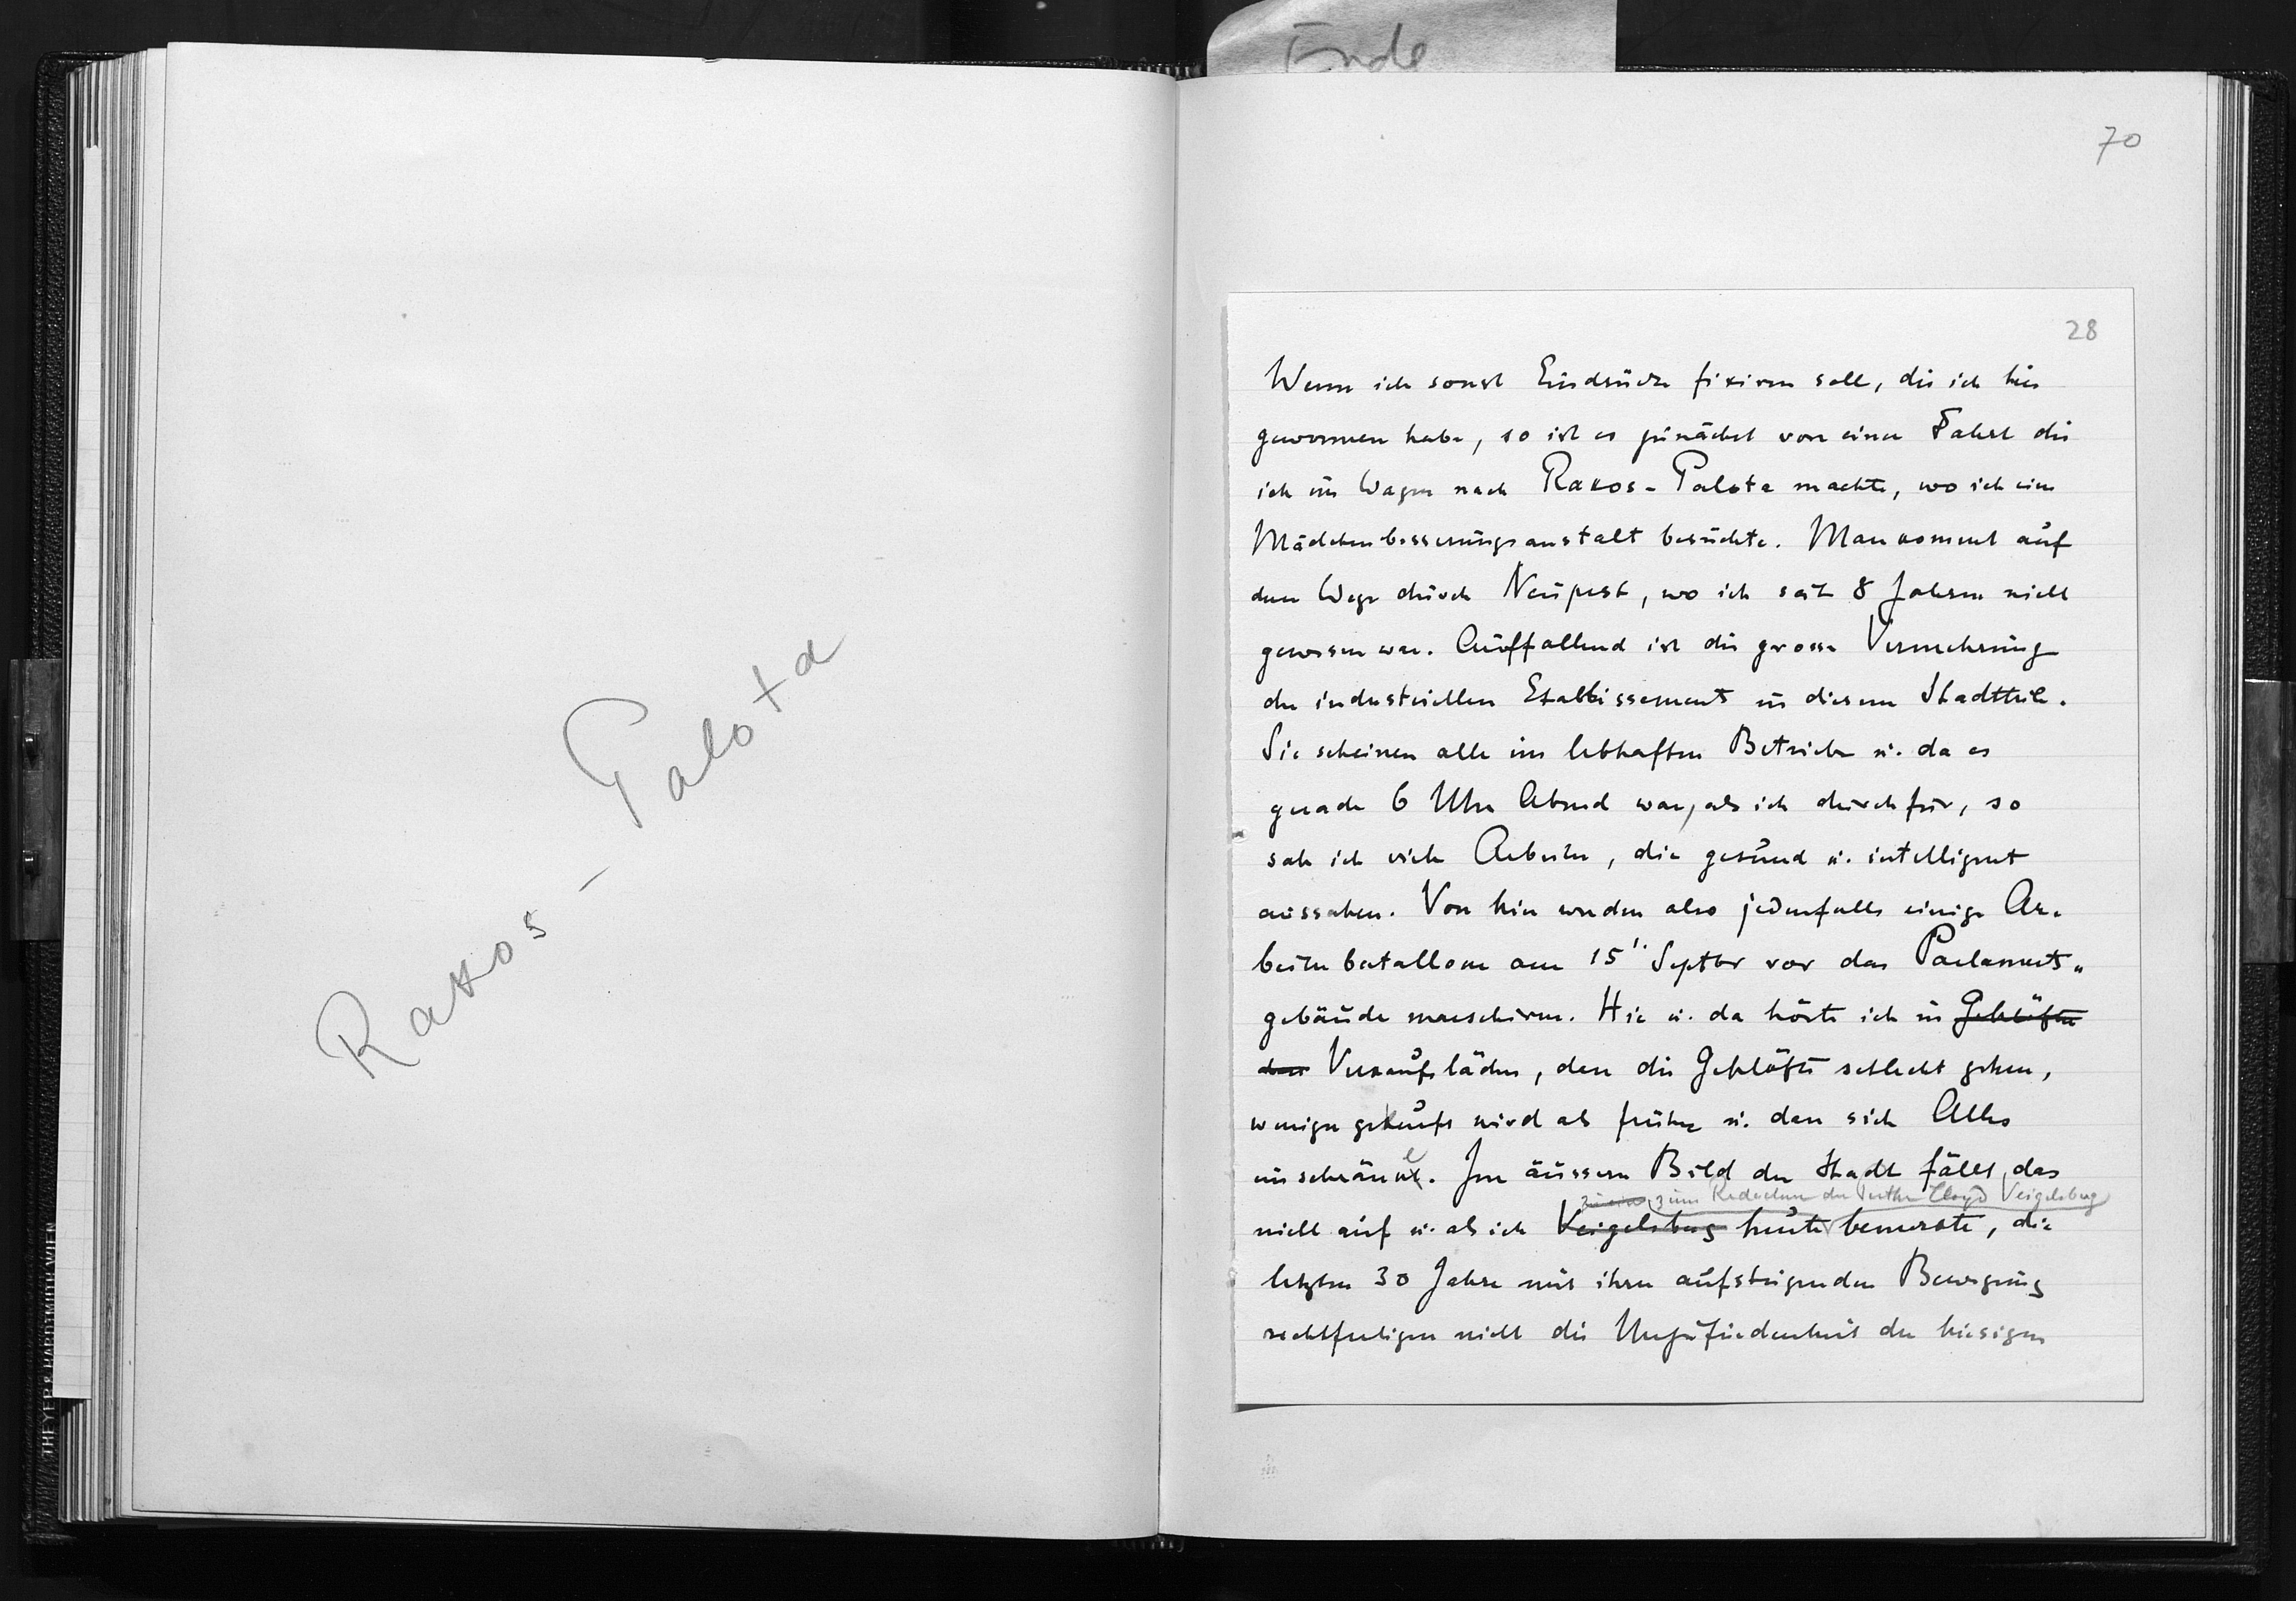 Ende
70
Rakos - Palota
28
Wenn ich sonst Eindrücke fixiren soll, die ich hier
gewonnen habe, so ist es zunächst von einer Fahrt die
ich im Wagen nach Rakos-Palota machte, wo ich eine
Mädchenbesserungsanstalt besuchte. Man kommt auf
dem Wege durch Neupest, wo ich seit 8 Jahren nicht
gewesen war. Auffallend ist die grosse Vermehrung
der industriellen Etablissements in diesem Stadttheile.
Sie scheinen alle im lebhaften Betriebe u. da es
gerade 6 Uhr Abend war, als ich durchfur, so
sah ich viele Arbeiter, die gesund u. intelligent
aussahen. Von hier werden also jedenfalls einige Ar-
beiterbatallone am 15t. Septbr vor das Parlaments-
gebäude marschiren. Hie u. da hörte ich in Geschäften
dass Verkaufsläden, dass die Geschäfte schlecht gehen,
weniger gekauft wird als früher u. dass sich Alles
einschränke. Im äussern Bild der Stadt fällt das
zum Redacteur des Pester Lloyd Veigelsberg
nicht auf u. als ich Veigelsberg heute bemerkte, die
letzten 30 Jahre mit ihrer aufsteigenden Bewegung
rechtfertigen nicht die Unzufriedenheit der hiesigen
THEYER & HARDTMUTH WIEN